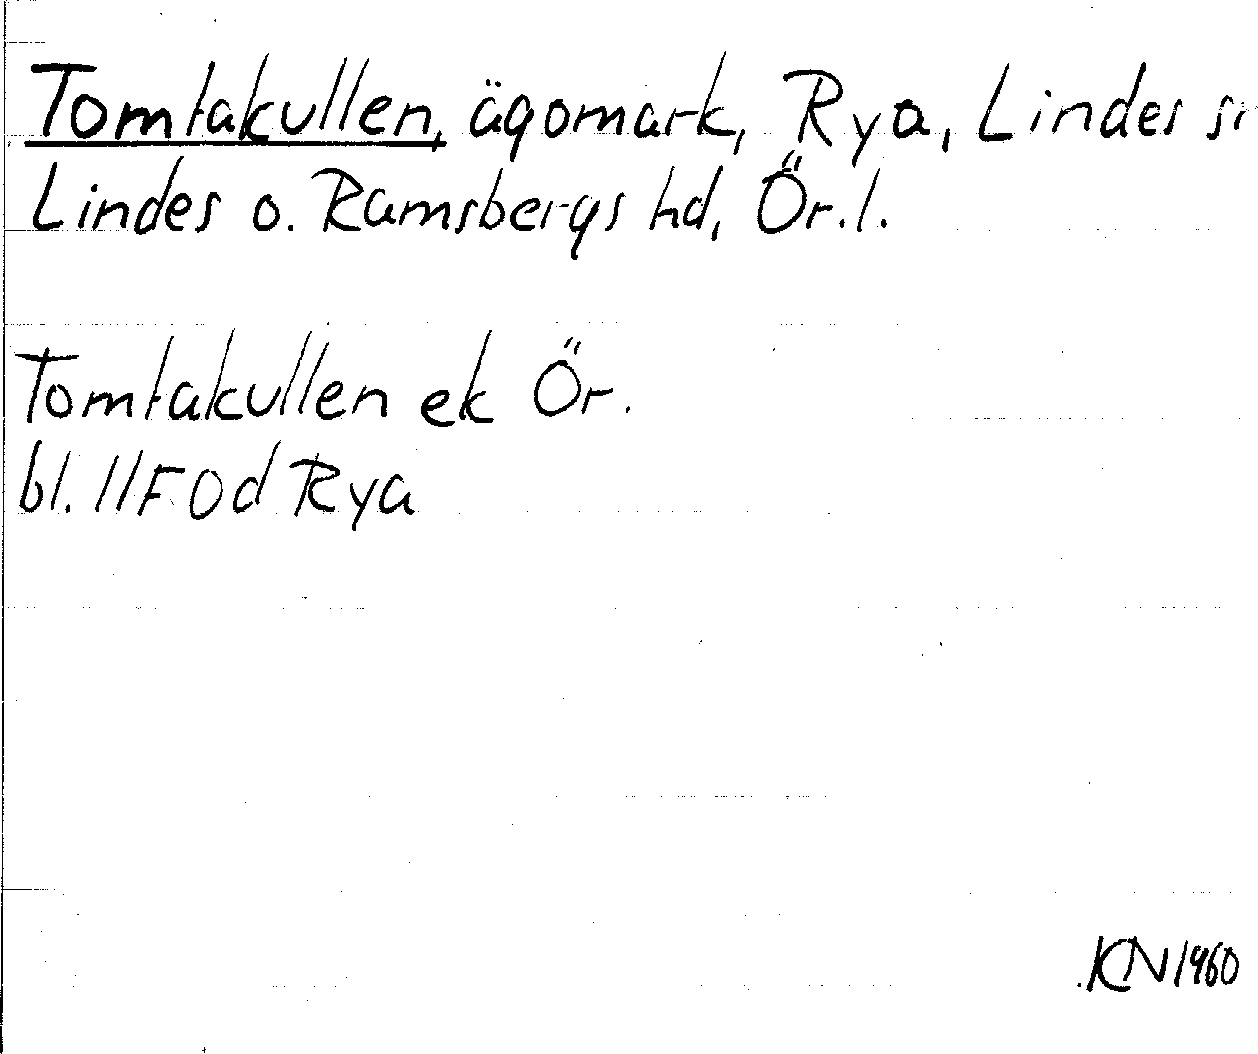 Tomtakullen, ägomark, Rya, Lindes sn
Lindes o. Ramsbergs hd, Ör.l.
Tomtakullen ek Ör.
bl. 11F0d Rya
KN 1960